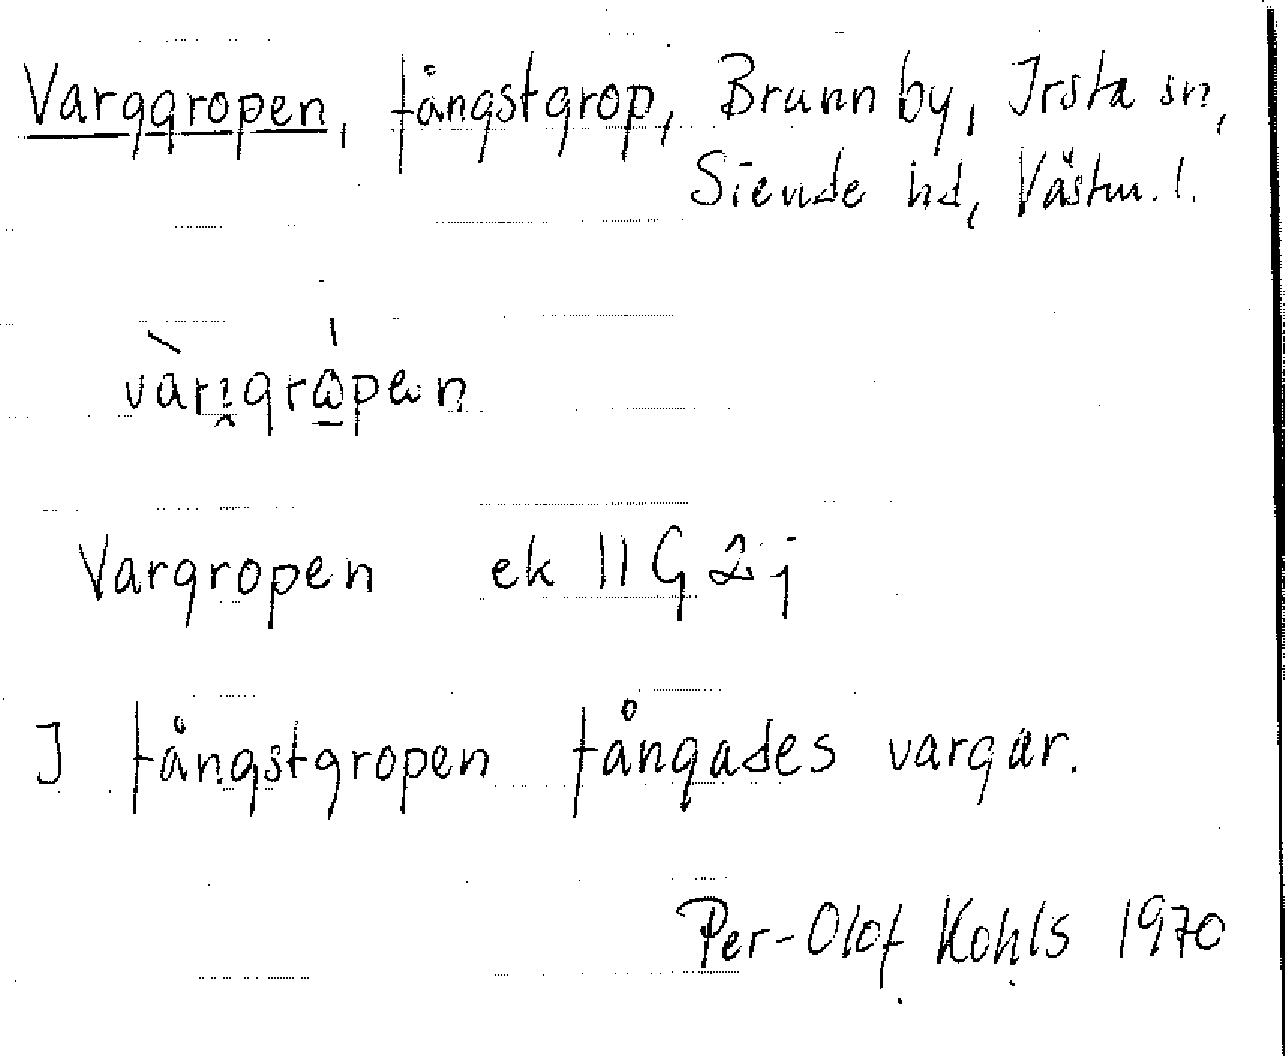 Varggropen, fångstgrop, Brunn by, Irsta sn,
Siende hd, Västm. l.
Vargropen ek 11G 2j
I fångstgropen fångades vargar.
Per-Olof Kohls 1970